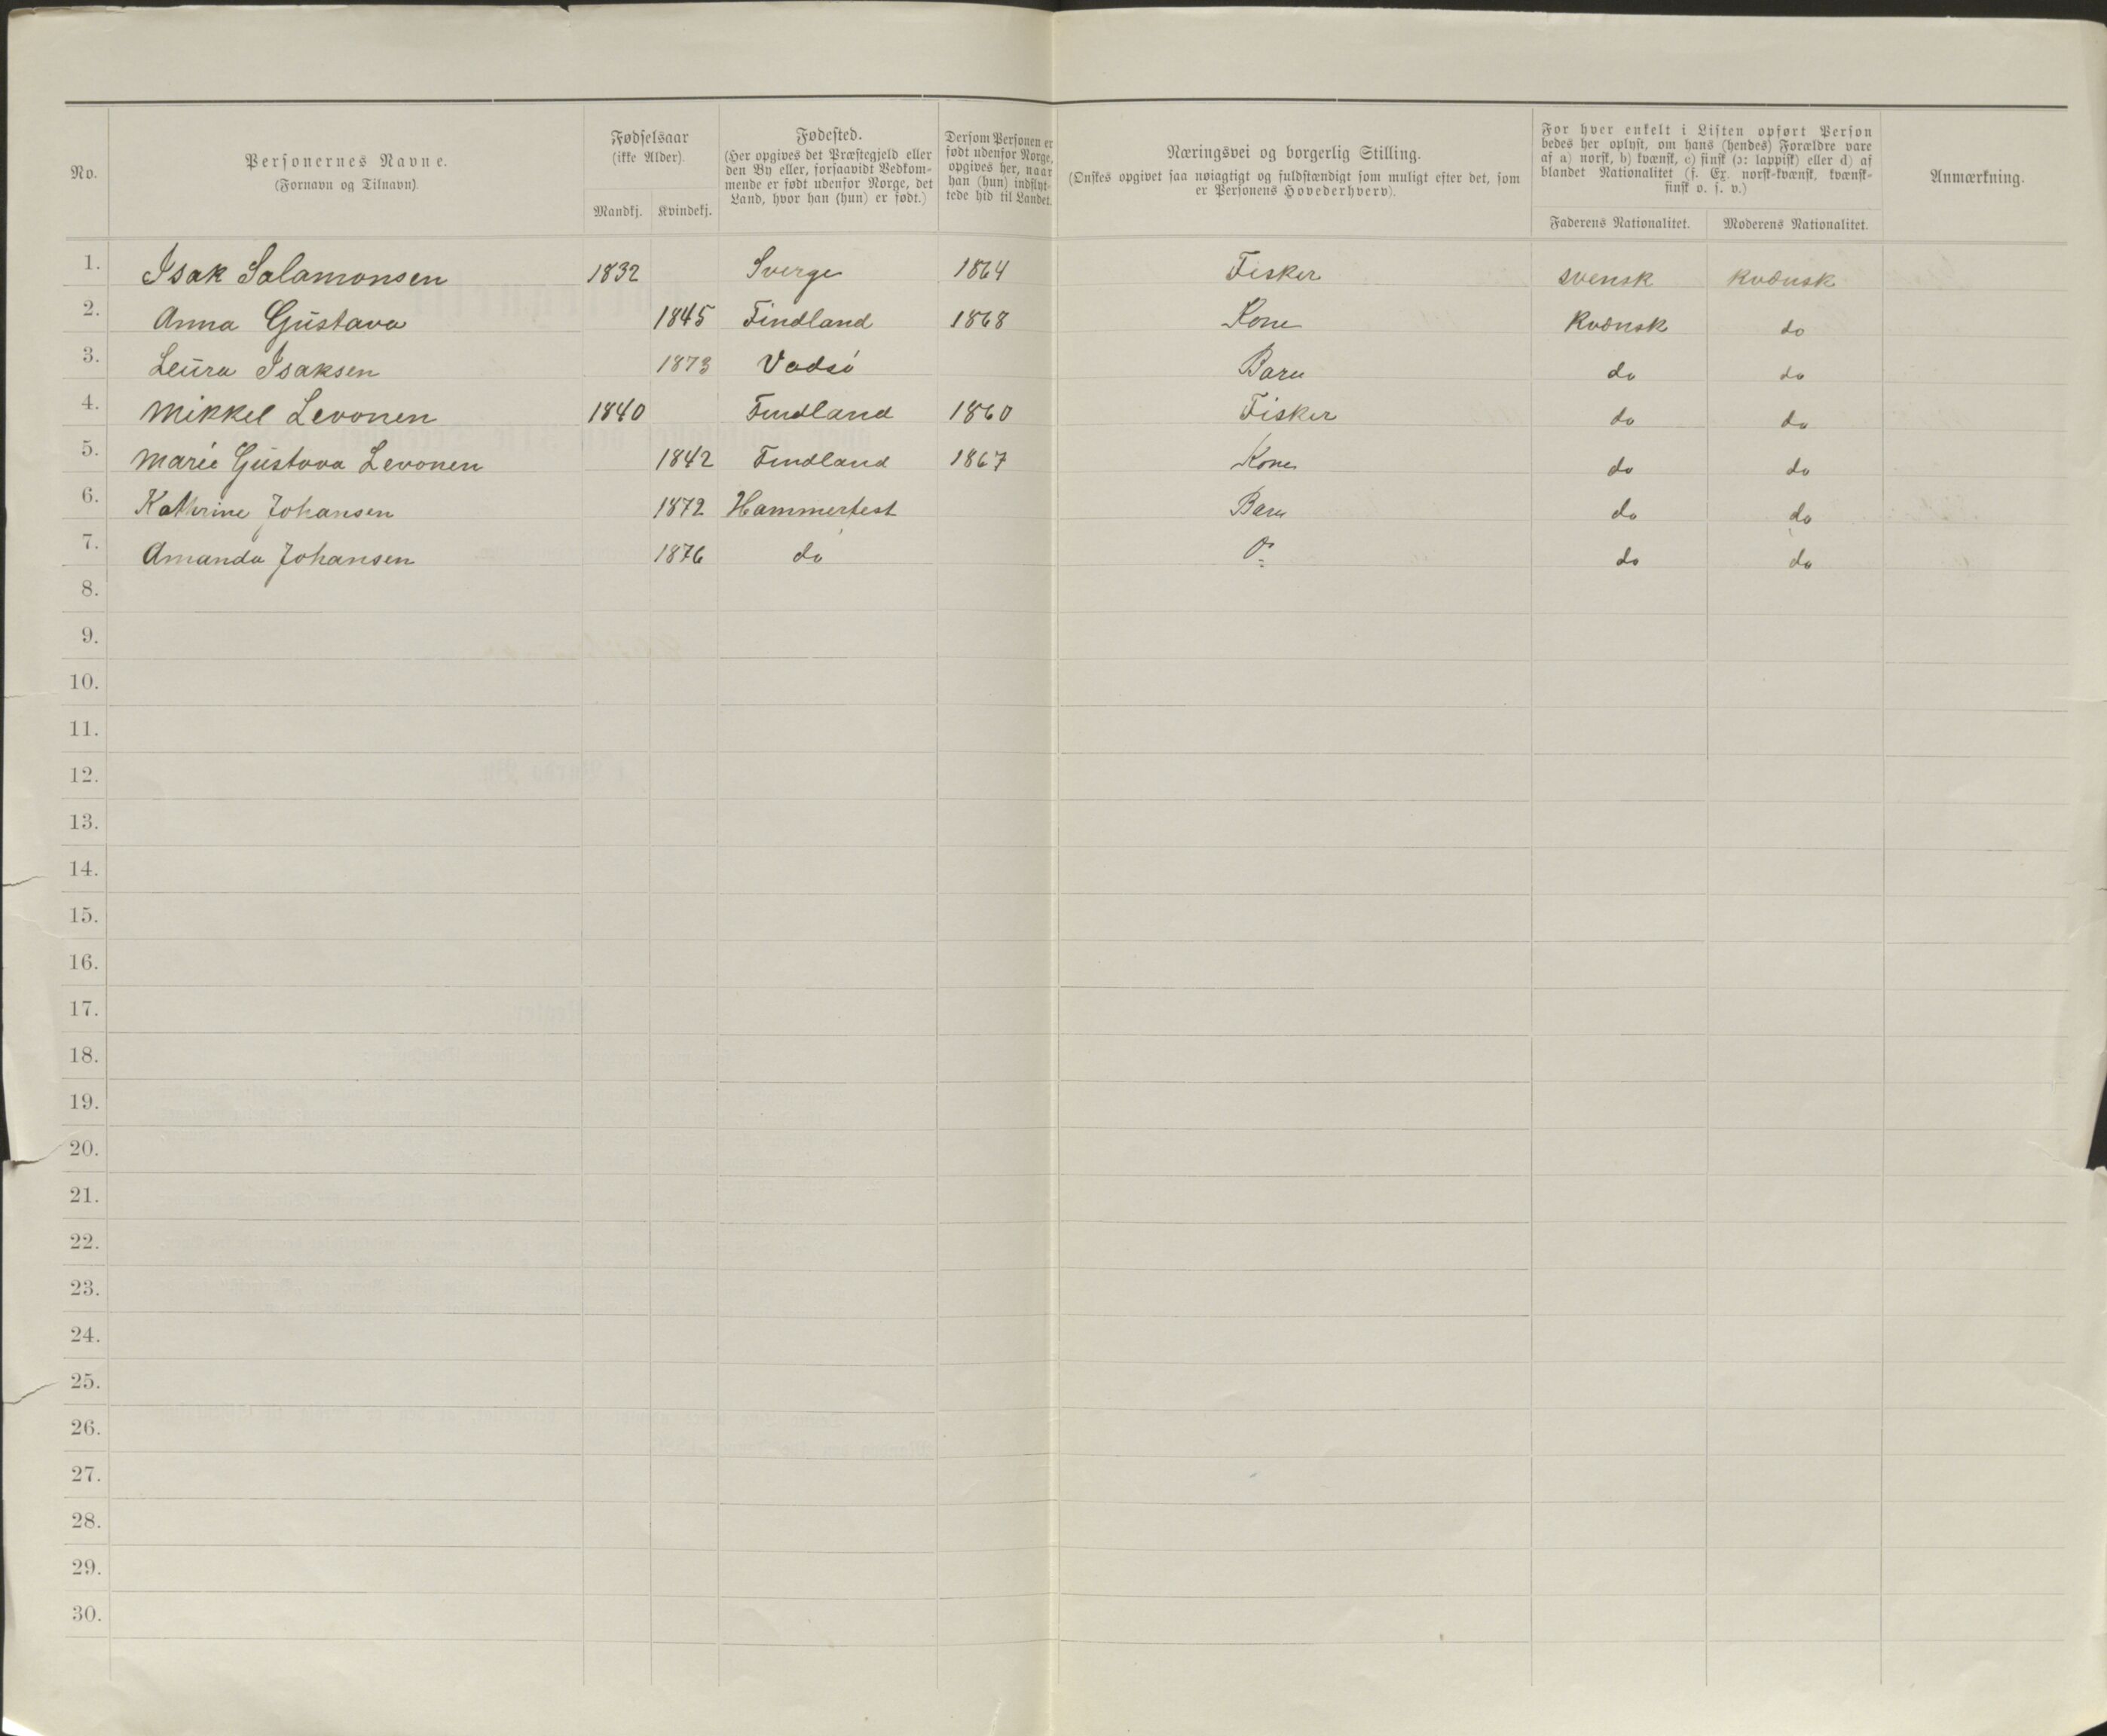 No.
Personernes Navne.
(Fornavn og Tilnavn).
Fødselsaar
(ikke Alder).
Mandkj. Kvindekj.
Fødested.
(Her opgives det Præstegjeld eller
den By eller, forsaavidt Vedkom-
mende er født udenfor Norge, det
Land, hvor han (hun) er født.)
Dersom Personen er
født udenfor Norge,
opgives her, naar
han (hun) indflyt-
tede hid til Landet.
Næringsvei og borgerlig Stilling.
(Ønskes opgivet saa nøiagtigt og fuldstændigt som muligt efter det, som
er Personens Hovederhverv).
For hver enkelt i Listen opført Person
bedes her oplyst, om hans (hendes) Forældre vare
af a) norsk, b) kvænsk, c) finsk (ɔ: lappisk) eller d) af
blandet Nationalitet (f. Ex. norsk-kvænsk, kvænsk-
finsk o. s. v.)
Faderens Nationalitet. Moderens Nationalitet.
Anmærkning.
1. Isak Salamonsen 1832 Sverge 1864 Fisker svensk kvænsk
2. Anna Gustava 1845 Findland 1868 Kone kvænsk do
3. Leura Isaksen 1873 Vadsö Barn do do
4. Mikkel Levonen 1840 Findland 1860 Fisker do do
5. Marie Gustava Levonen 1842 Findland 1867 Kone do do
6. Kathrine Johansen 1872 Hammerfest Barn do do
7. Amanda Johansen 1876 do do do
8.
9.
10.
11.
12.
13.
14.
15.
16.
17.
18.
19.
20.
21.
22.
23.
24.
25.
26.
27.
28.
29.
30.